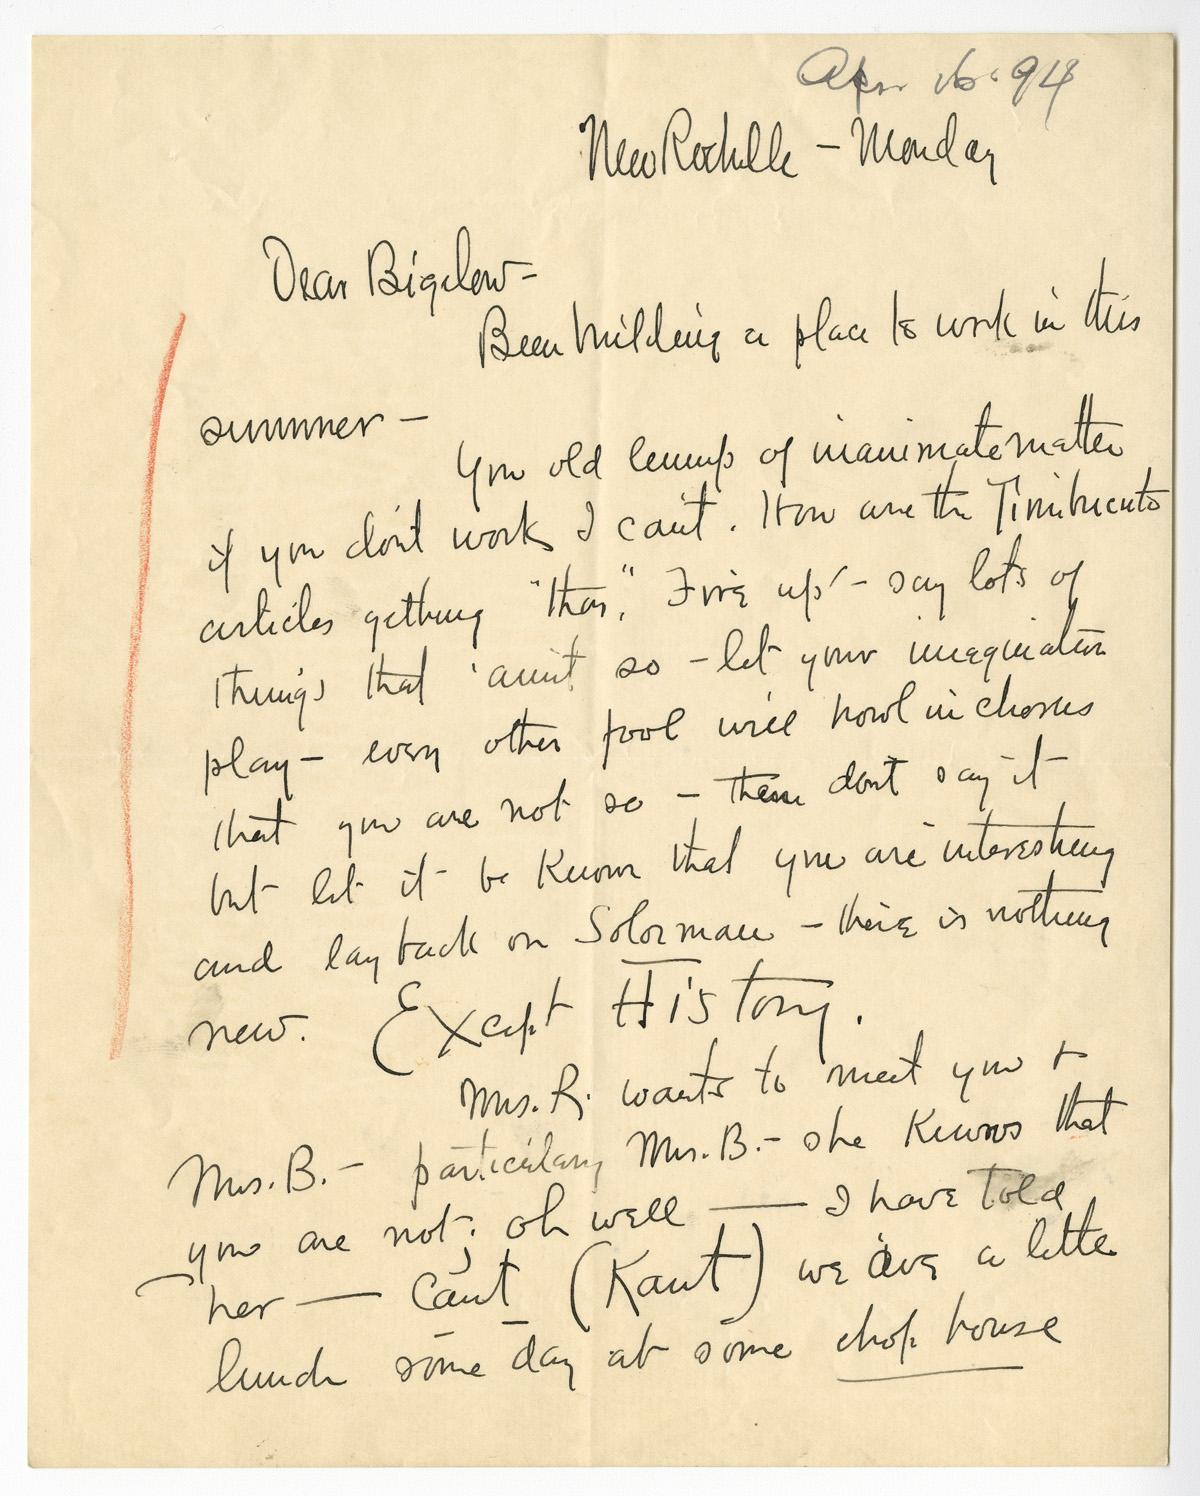 Apr 16 '94
New Rochelle — Monday
Dear Bigelow —
Been building a place to work in this
summer —
You old lump of inanimate matter
if you dont work I cant. How are the Timbucuto
articles getting "thar," Fire up' — say lots of
things that 'aint so — let your imagination
play — every other fool will howl in chorus
that you are not so — them dont say it
but let it be known that you are interesting
and lay back on Solozman — there is nothing
new. Except History.
Mrs. R. wants to meet you +
Mrs. B. — particulary Mrs. B. — she knows that
you are not; oh well — I have told
her — Cant (Kant) we ave a little
lunch some day at some chop house